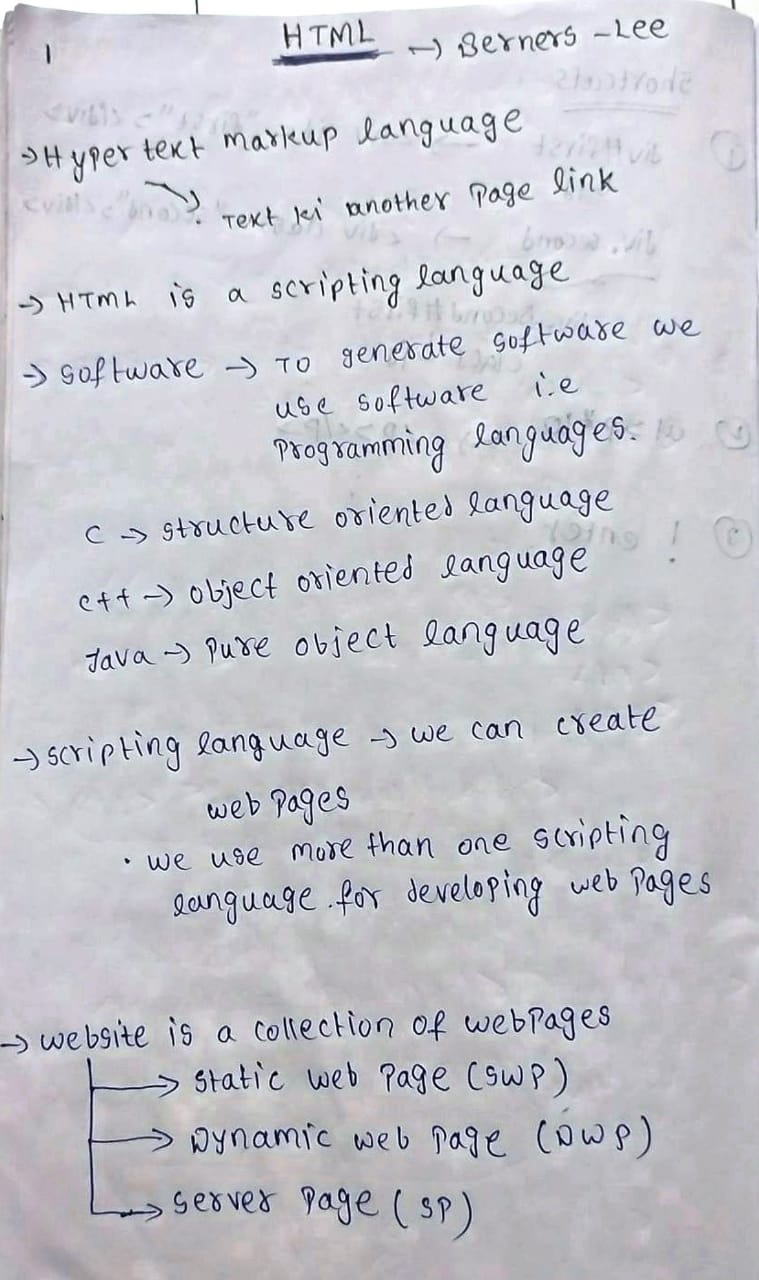 1
HTML → Berners-Lee
→ Hyper text markup language
Text ki another Page link
→ HTML is a scripting language
→ software → To generate software we
use software i.e
Programming languages.
C → structure oriented language
C++ → object oriented language
Java → Pure object language
→ scripting language → we can create
web Pages
• we use more than one scripting
language for developing web Pages
→ website is a collection of webPages
→ static web Page (SWP)
→ Dynamic web Page (DWP)
→ server Page (SP)